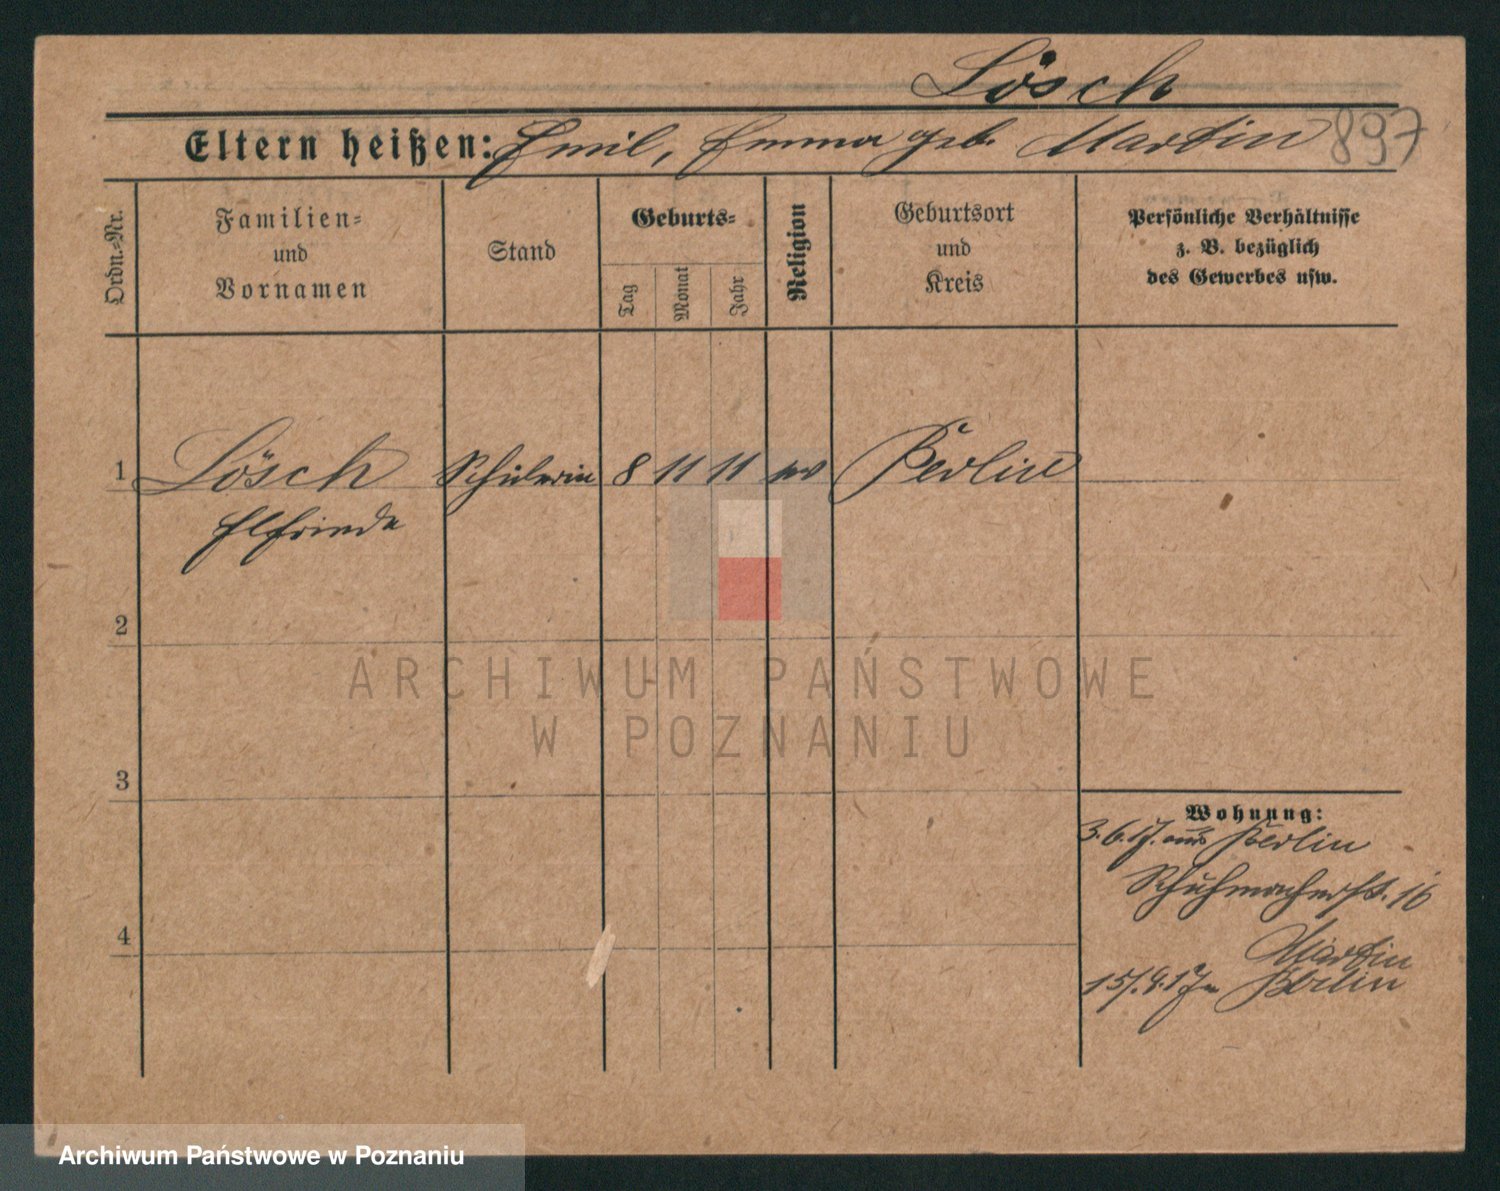 Lösch
Eltern heißen: Emil, Emma geb. Martin 897
Ordn.-Nr.
Familien-
und
Vornamen
Stand
Geburts-
Tag
Monat
Jahr
Religion
Geburtsort
und
Kreis
Persönliche Verhältnisse
z. B. bezüglich
des Gewerbes usw.
1 Lösch Schülerin 8 11 11 ev Berlin
Elfriede
2
3
4
Wohnung:
3.6.17. aus Berlin
Schuhmacherst. 16
Martin
15/.9.17 n Berlin
ARCHIWUM PAŃSTWOWE
W POZNANIU
Archiwum Państwowe w Poznaniu